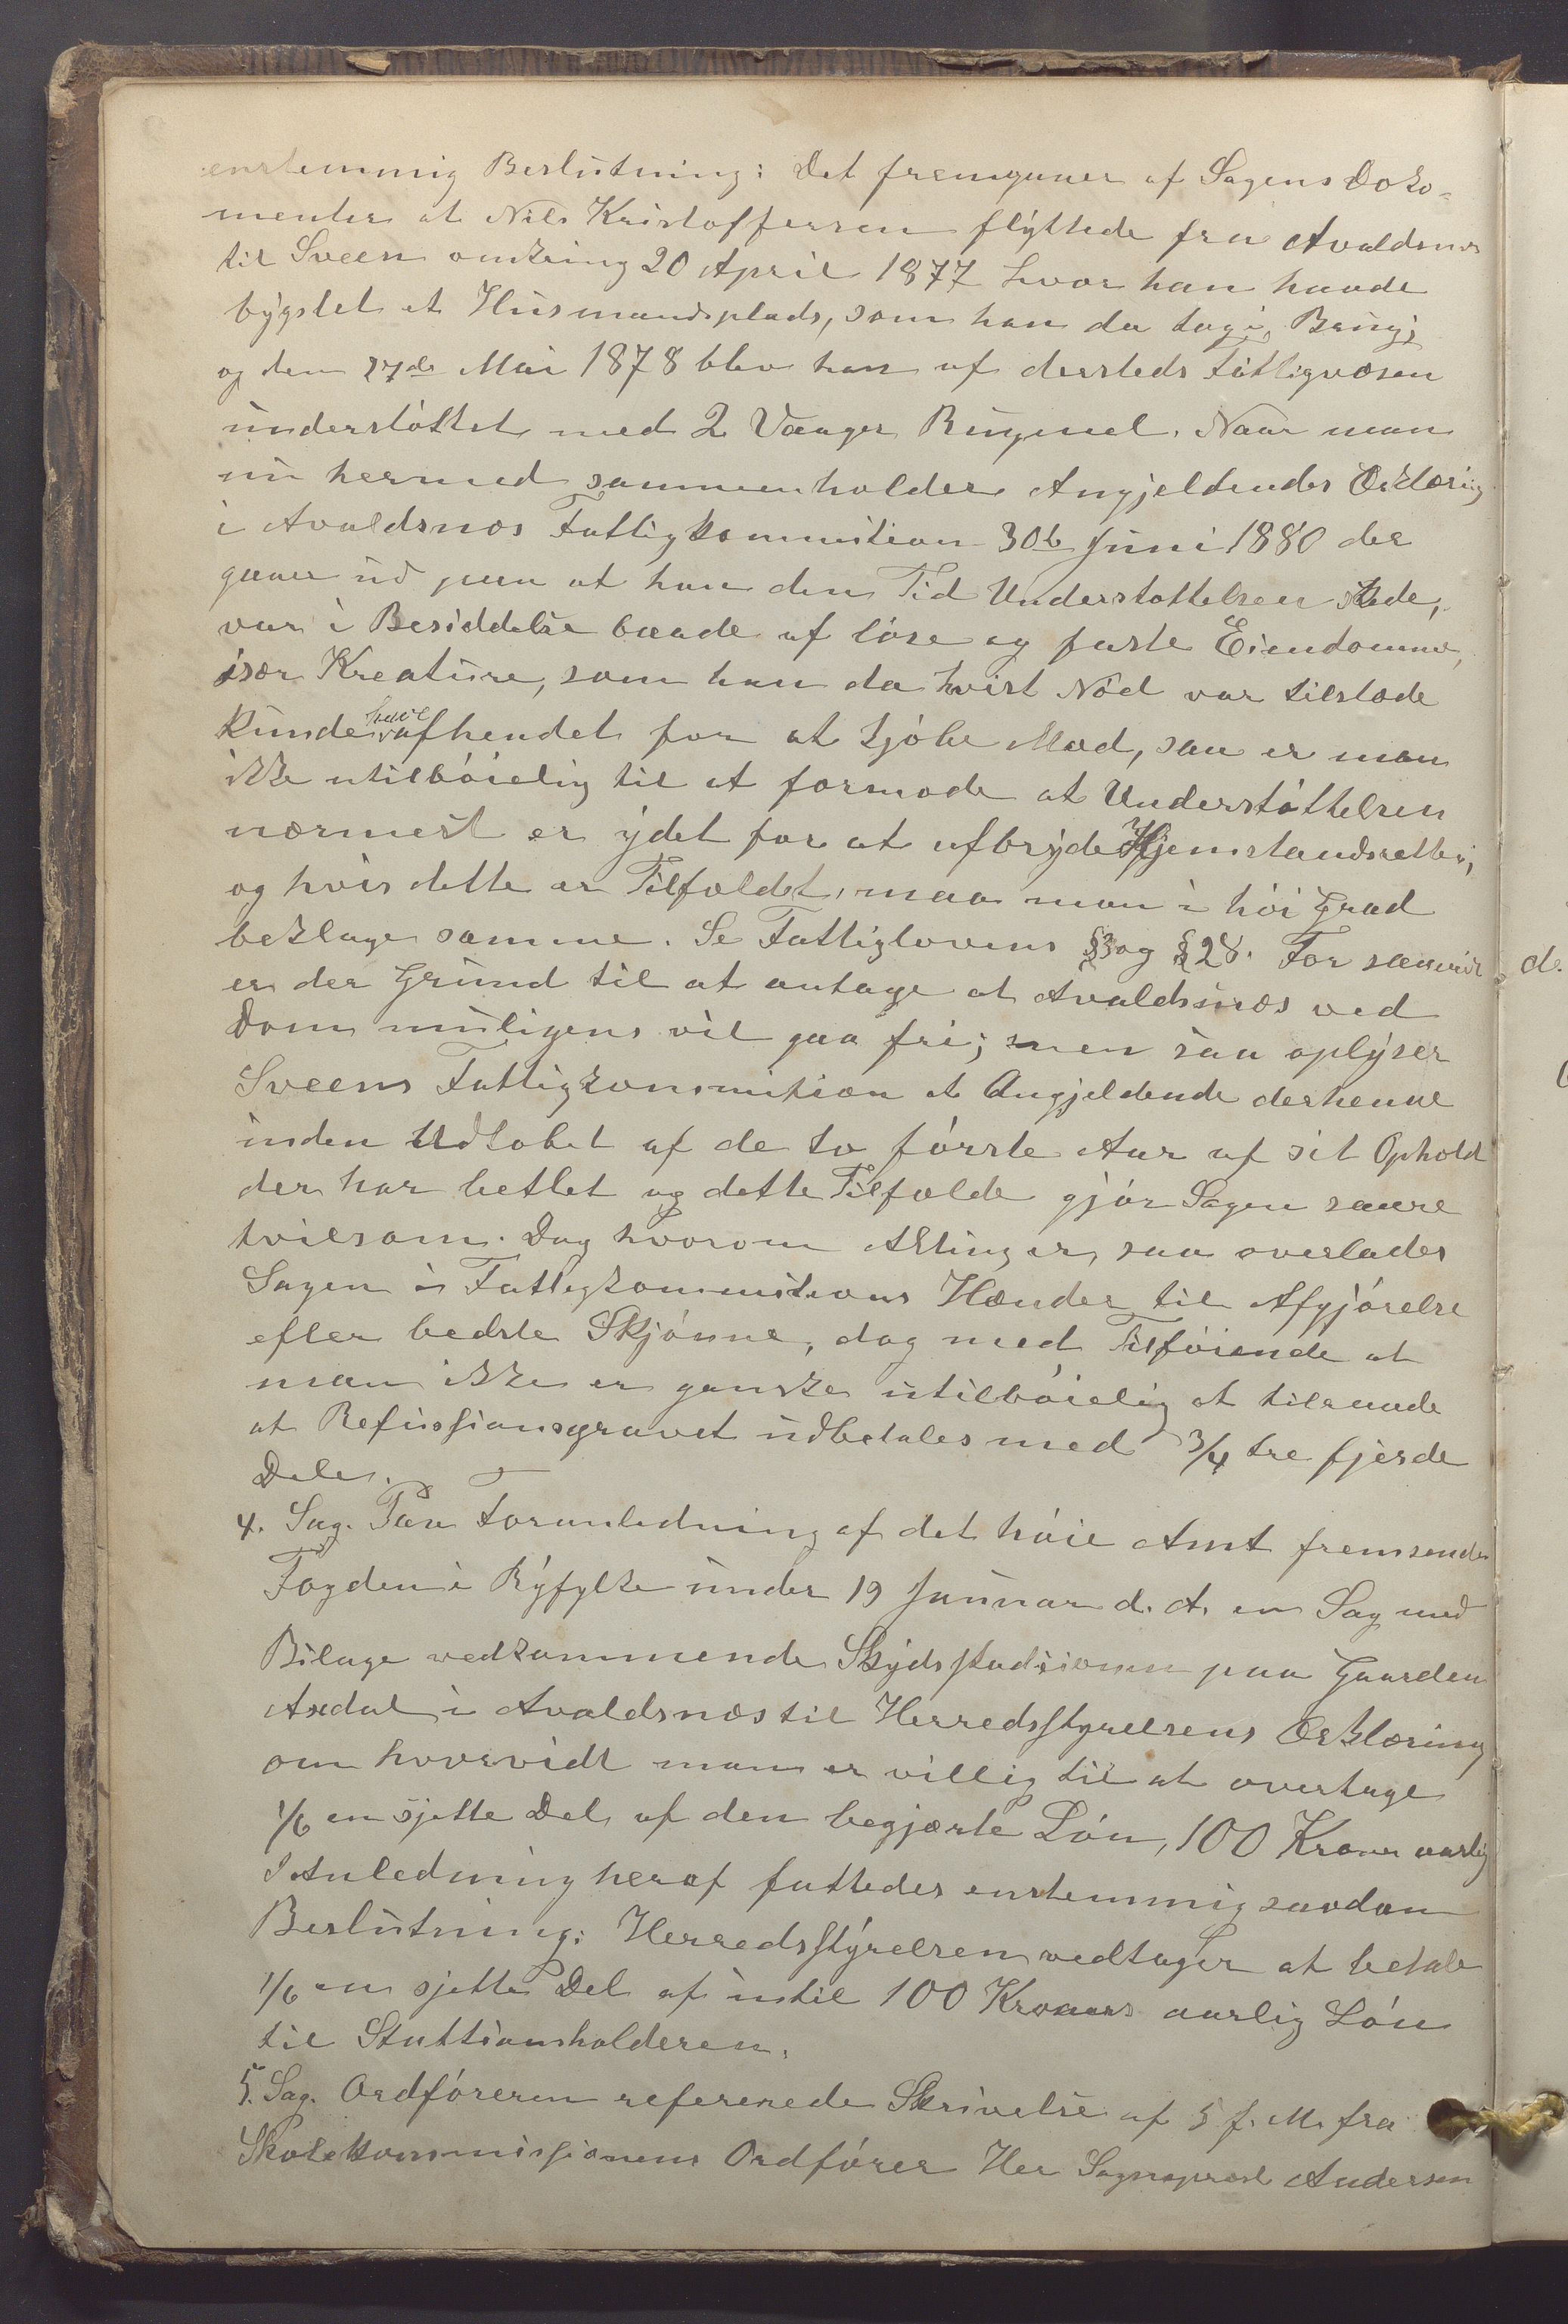 enstemmig Beslutning: Det fremgaaer af Sagens Doko-
menter at Nils Kristoffersen flyttede fra Avaldsnes
til Sveen omkring 20 April 1877 hvor han havde
bygslet et Husmandsplads, som han da tog i Brug;
og den 27de Mai 1878 blev han af dersteds Fattigvæsen
understøttet med 2 Vaager Rugmel. Naar man
nu hermed sammenholder Angjeldendes Erklæring
i Avaldsnæs Fattigkommition 30te Juni 1880 der
gaaer ud paa at han den Tid Understøttelsen skede,
var i Besiddelse baade af løse og faste Eiendomme,
især Kreature, som han da hvist Nød var tilstæde
kunde have afhendet for at kjøbe Mad, saa er man
ikke utilbøielig til at formode at Understøttelsen
nærmest er ydet for at afbryde Hjemstandsretten,
og hvis dette er Tilfældet, maa man i høi Grad
beklage samme. Se Fattiglovens §3 og §28. For saavidt
er der Grund til at antage at Avaldsnæs ved
Dom muligens vil gaa fri; men saa oplyser
Sveens Fattigkommition at Angjeldende derhenne
inden Udløbet af de to første Aar af sit Ophold
der har betlet og dette Tilfælde gjør Sagen saare
tvilsom. Dog hvorom Alting er, saa overlades
Sagen i Fattigkommitions Hænder til Afgjørelse
efter bedste Skjønne, dog med Tilføiende at
man ikke er ganske utilbøielig at tilraade
at Refusjionsgravet udbetales med 3/4 tre fjerde
Dele.
4. Sag. Paa Foranledning af det høie Amt fremsender
Fogden i Ryfylke under 19 Januar d. A. en Sag med
Bilage vedkommende Skydsstadsionen paa Gaarden
Axdal i Avaldsnæs til Herredsstyrelsens Erklæring
om hvorvidt man er villig til at overtage
1/6 en sjette Del af den begjærte Løn, 100 Kroner aarlig
I Anledning heraf fattedes enstemmig saadan
Beslutning: Herredsstyrelsen vedtager at betale
1/6 en sjette Del af intil 100 Kroners aarlig Løn
til Stattionsholderen.
5. Sag. Ordføreren refererede Skrivelse af 5 f. M. fra
Skolekommissjonens Ordfører Her Sogneprest Andersen